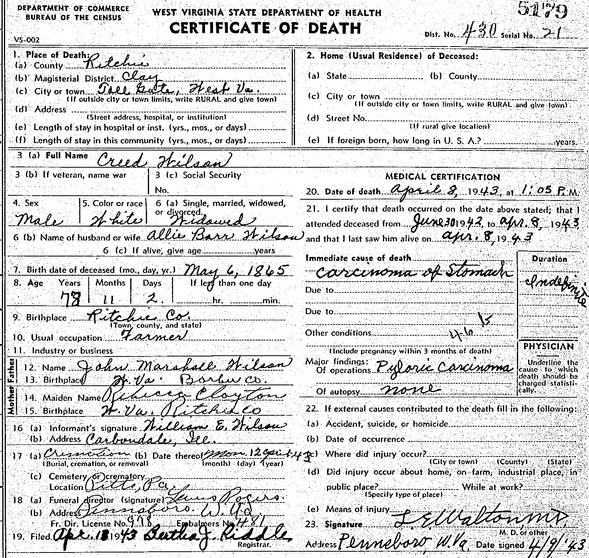 DEPARTMENT OF COMMERCE
BUREAU OF THE CENSUS
WEST VIRGINIA STATE DEPARTMENT OF HEALTH
CERTIFICATE OF DEATH
5179
VS-002
Dist. No. 430 Serial No. 21
1. Place of Death:
(a) County Ritchie
(b) Magisterial District Clay
(c) City or town Toll Gate, West Va.
(If outside city or town limits, write RURAL and give town)
(d) Address
(Street address, hospital, or institution)
(e) Length of stay in hospital or inst. (yrs., mos., or days)
(f) Length of stay in this community (yrs., mos., or days)
2. Home (Usual Residence) of Deceased:
(a) State (b) County
(c) City or town
(If outside city or town limits, write RURAL and give town)
(d) Street No.
(If rural give location)
(e) If foreign born, how long in U. S. A.? years.
3 (a) Full Name Creed Wilson
3 (b) If veteran, name war
3 (c) Social Security
No.
4. Sex
Male
5. Color or race
White
6 (a) Single, married, widowed,
or divorced
Widowed
6 (b) Name of husband or wife Allie Barr Wilson
6 (c) If alive, give age years
7. Birth date of deceased (mo., day, yr.) May 6, 1865
8. Age Years Months Days If less than one day
78 11 2 hr. min.
9. Birthplace Ritchie Co.
(Town, county, and state)
10. Usual occupation Farmer
11. Industry or business
Father
12. Name John Marshall Wilson
13. Birthplace W. Va. Barbur Co.
Mother
14. Maiden Name Rebecca Clayton
15. Birthplace W. Va. Ritchie Co
16 (a) Informant's signature William E. Wilson
(b) Address Carbondale, Ill.
17 (a) Cremation (b) Date thereof Mon. 12 April 43
(Burial, cremation or removal) (month) (day) (year)
(c) Cemetery or crematory
Location Pitts, Pa.
18 (a) Funeral director (signature) Lewis Rogers
(b) Address Pennsboro W. Va
Fr. Dir. License No. 978 Embalmers No. 481
19. Filed Apr. 18 1943 Bertha J. Riddle
Registrar.
MEDICAL CERTIFICATION
20. Date of death April 8, 1943, at 1:05 P.M.
21. I certify that death occurred on the date above stated; that I
attended deceased from June 30 1942, to Apr. 8, 1943
and that I last saw him alive on Apr. 8, 1943
Immediate cause of death
Carcinoma of Stomach
Duration
Indefinite
Due to
Due to
Other conditions
46 b
(Include pregnancy within 3 months of death)
Major findings:
Of operations Pyloric Carcinoma
Of autopsy none
PHYSICIAN
Underline
the cause to
which death
should be
charged statisti-
cally.
22. If external causes contributed to the death fill in the following:
(a) Accident, suicide, or homicide
(b) Date of occurrence
(c) Where did injury occur?
(City or town) (County) (State)
(d) Did injury occur about home, on farm, industrial place, in
public place? While at work?
(Specify type of place)
(e) Means of injury
23. Signature L E Walton M.D.
M. D. or other
Address Pennsboro W. Va Date signed 4/9/43